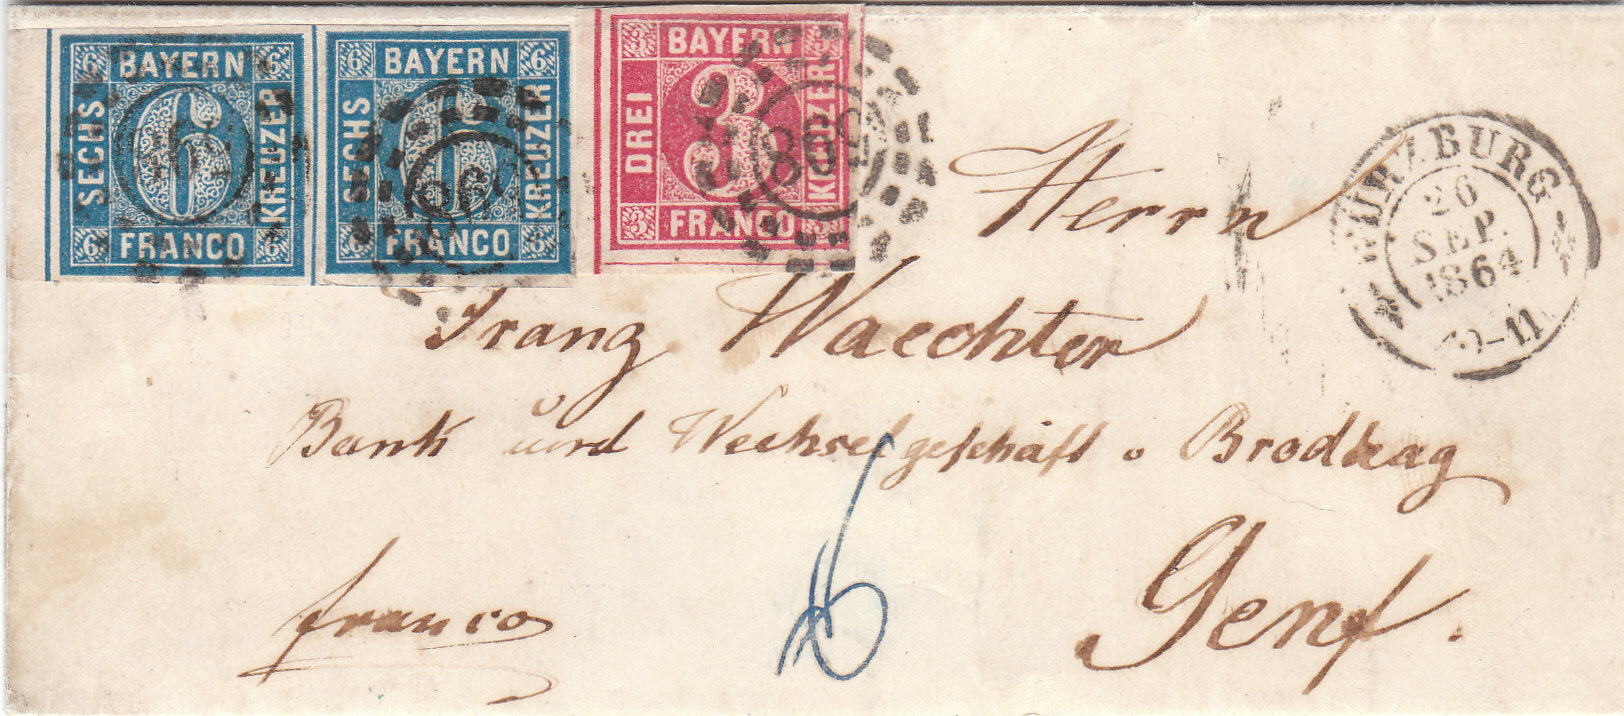 6 BAYERN 6
SECHS 6 KREUZER
6 FRANCO 6
6 BAYERN 6
SECHS 6 KREUZER
6 FRANCO 6
3 BAYERN 3
DREI 3 KREUZER
3 FRANCO 3
WÜRZBURG
26
SEP.
1864
10-11
Herrn
Franz Waechter
Bank und Wechselgeschäft
Genf.
franco
6